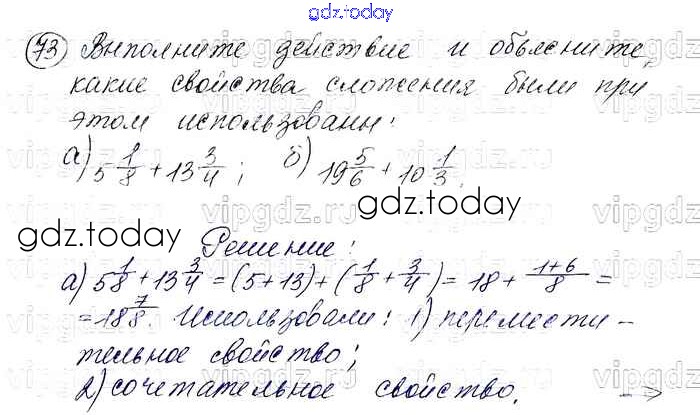 gdz.today
73 Выполните действие и объясните,
какие свойства сложения были при
этом использованы:
а) 5 1/8 + 13 3/4; б) 19 5/6 + 10 1/3.
gdz.today gdz.today
Решение:
а) 5 1/8 + 13 3/4 = (5+13)+(1/8 + 3/4) = 18 + (1+6)/8 =
= 18 7/8. Использовали: 1) перемести-
тельное свойство;
2) сочетательное свойство. →
vipgdz.ru